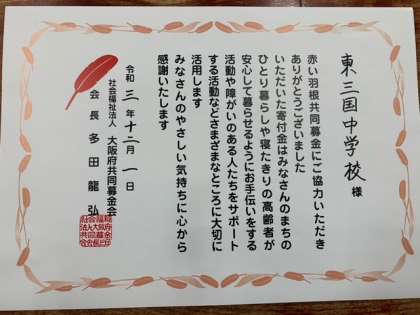 東三国中学校 様
赤い羽根共同募金にご協力いただき
ありがとうございました
いただいた寄付金はみなさんのまちの
ひとり暮らしや寝たきりの高齢者が
安心して暮らせるようにお手伝いをする
活動や障がいのある人たちをサポート
する活動などさまざまなところに大切に
活用します
みなさんのやさしい気持ちに心から
感謝いたします
令和三年十二月一日
社会福祉法人 大阪府共同募金会
会長 多田龍弘